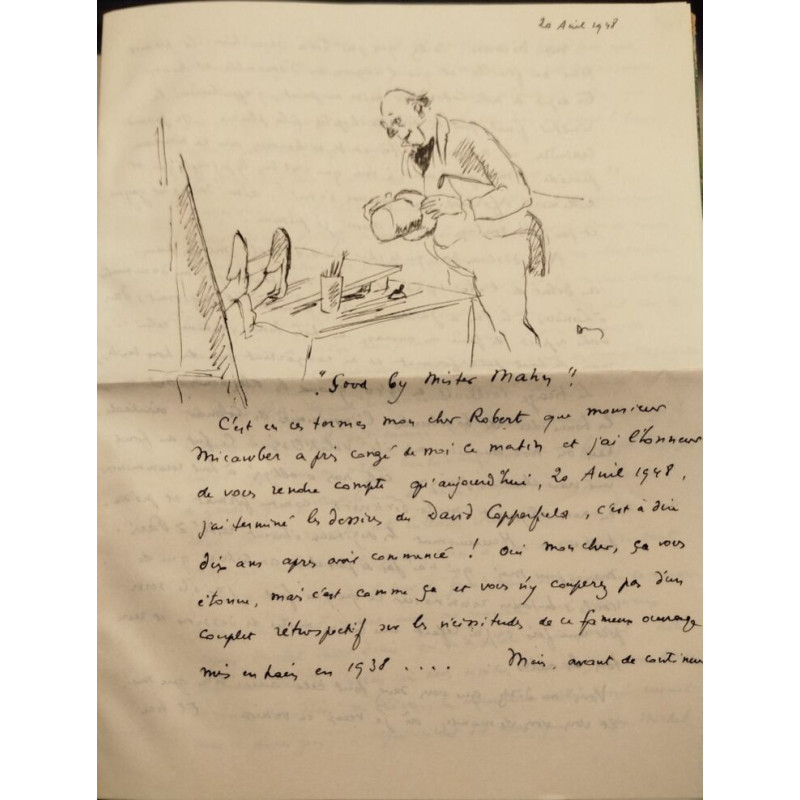 20 Avril 1948
"Good by Mister Mahn"!
C'est en ces termes mon cher Robert que monsieur
Micawber a pris congé de moi ce matin et j'ai l'honneur
de vous rendre compte qu'aujourd'hui, 20 Avril 1948,
j'ai terminé les dessins du David Copperfield, c'est à dire
dix ans après avoir commencé ! Oui mon cher, ça vous
étonne, mais c'est comme ça et vous n'y couperez pas d'un
couplet rétrospectif sur les vicissitudes de ce fameux ouvrage
mis en train en 1938 .... Mais, avant de continuer